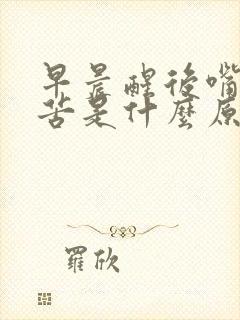 早晨醒後嘴
苦是什麼原
羅欣